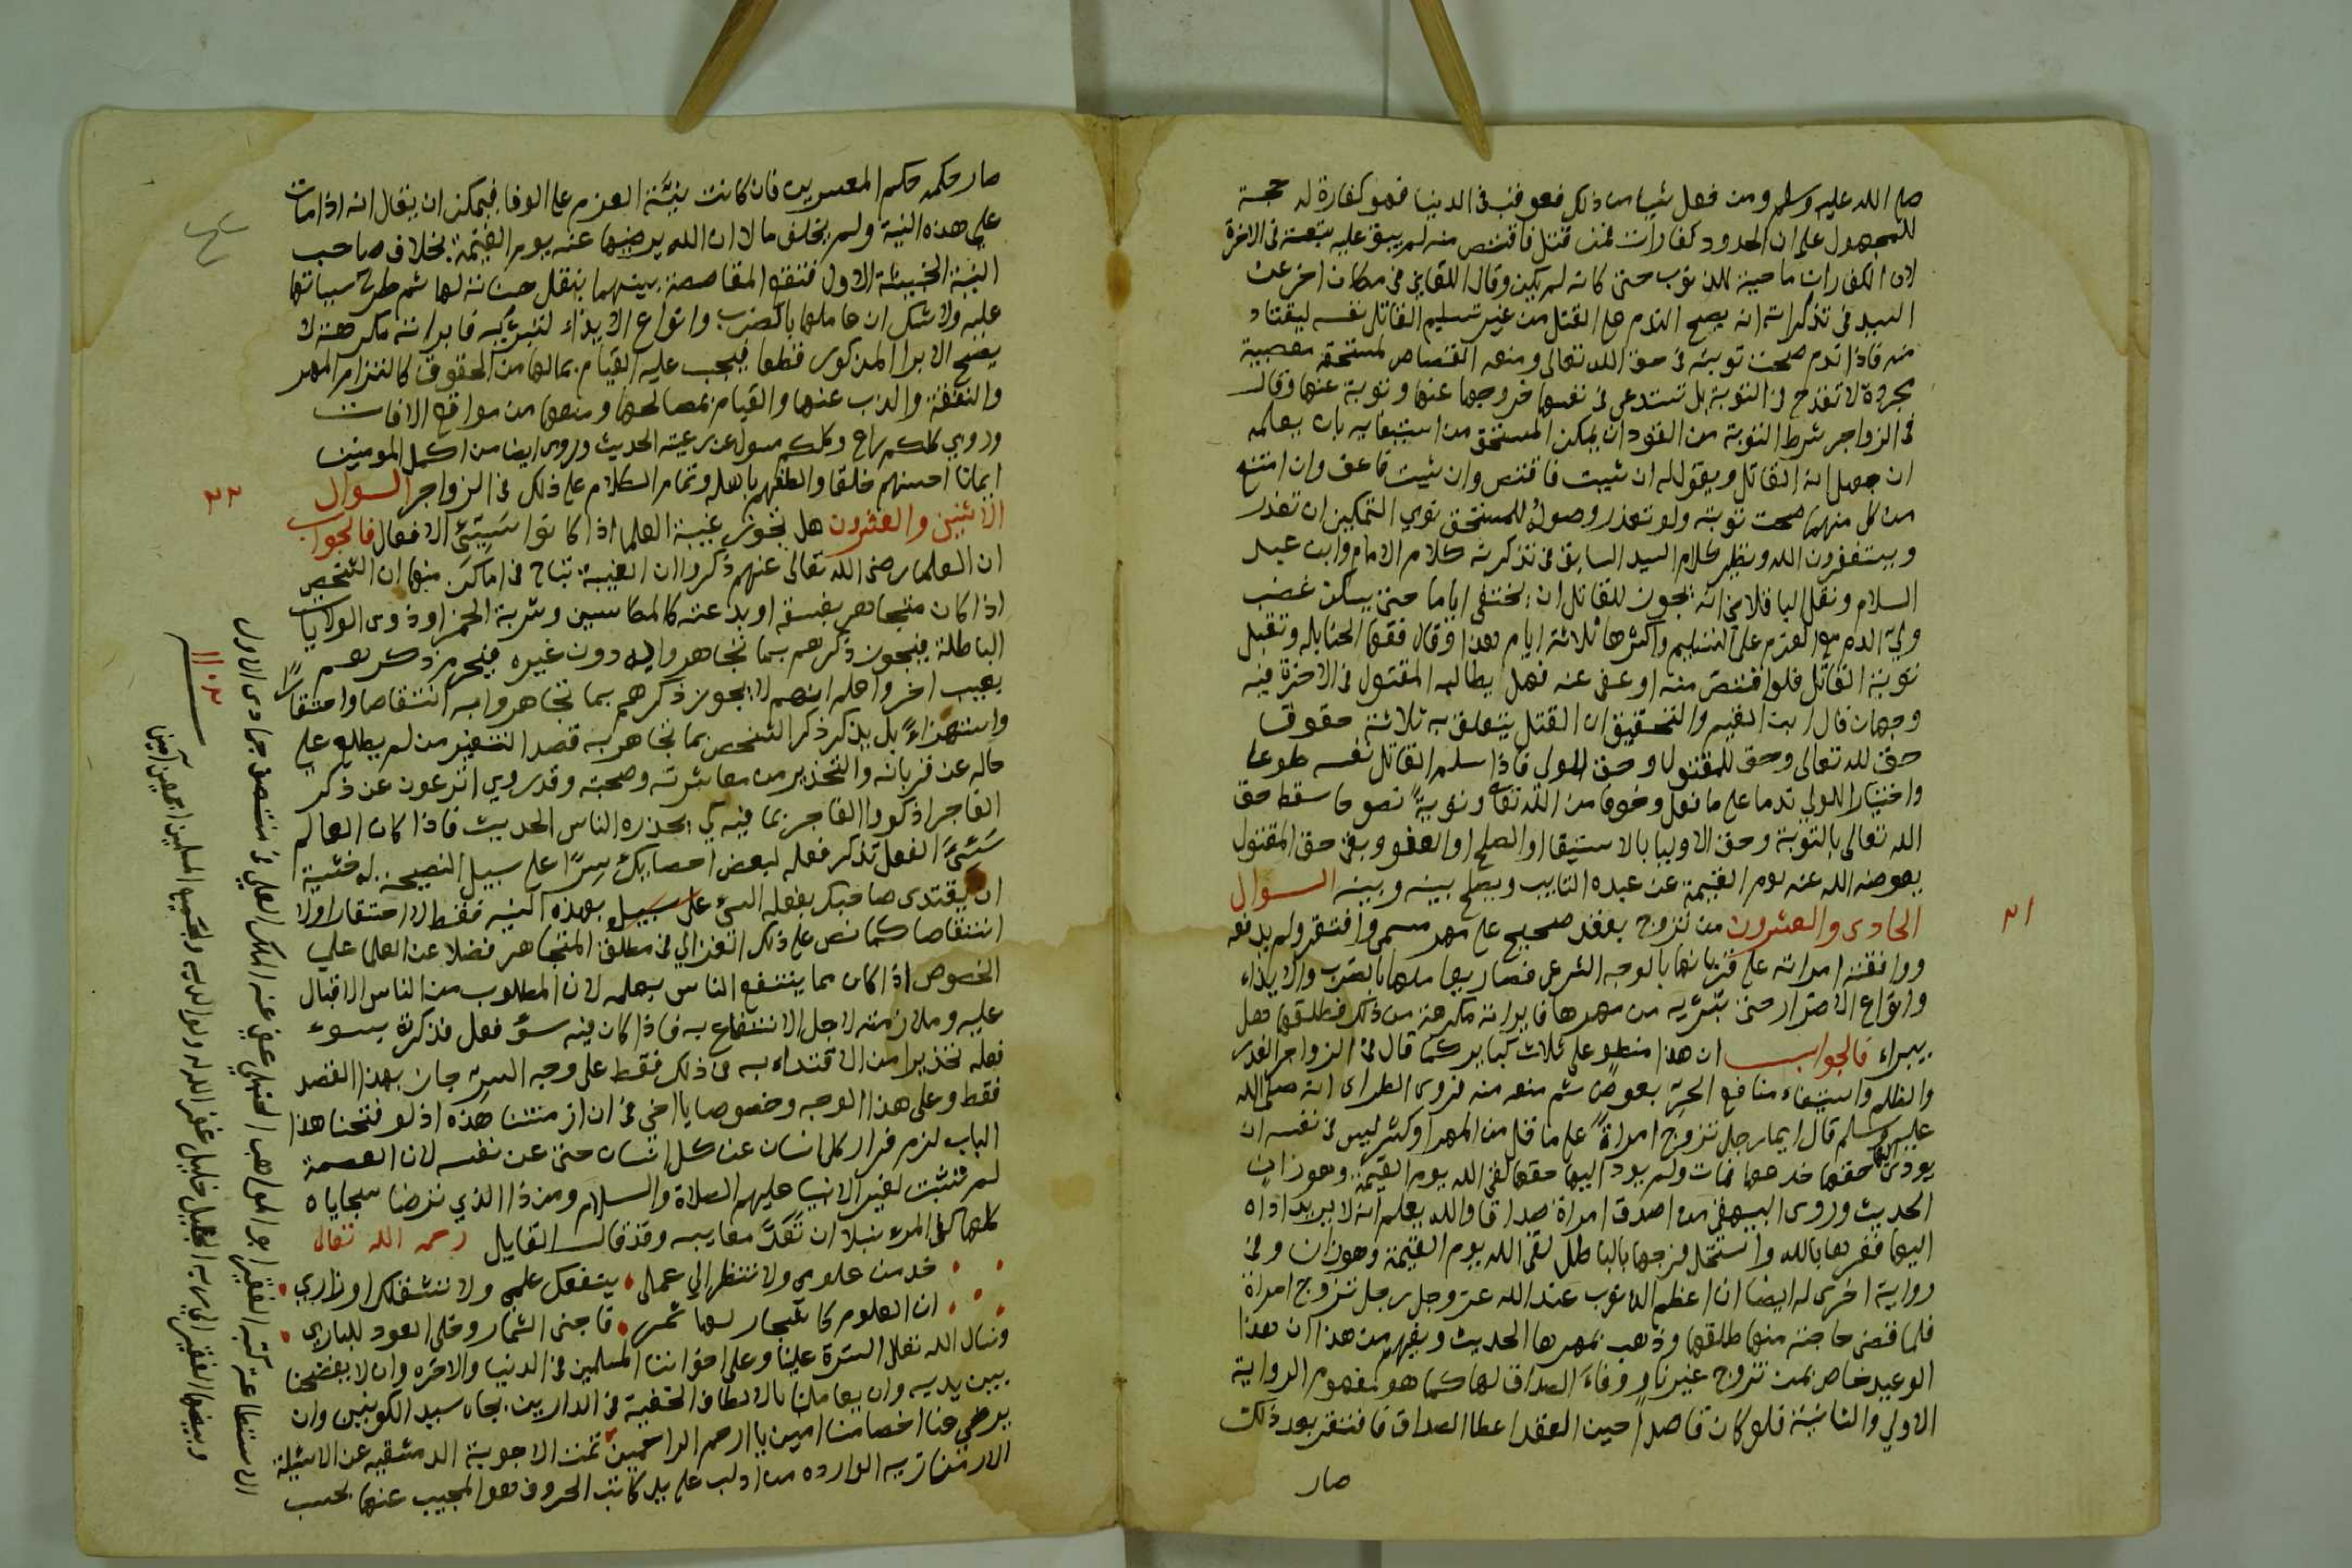 صلى الله عليه وسلم ومن فعل شيا من ذلك فعوقب في الدنيا فهو كفارة له حجة
للجمهور على ان الحدود كفارات فمن قتل فاقتص منه لم يبق عليه تبعة في الاخرة
لان الكفارات ماحية للذنوب حتى كانه لم يكن وقال اللقاني في مكان اخر عن
السيد في تذكرته انه يصح الندم على القتل من غير تسليم القاتل نفسه ليقتاد
منه فاذا ندم صحت توبته في حق الله تعالى ومنعه القصاص لمستحقه معصية
مجردة لا تقدح في التوبة بل تستدعي في نفسها خروجها عنها وتوبة عنها وقال
في الزواجر شرط التوبة من القود ان يمكن المستحق من استيفايه بان يعلمه
ان جهل انه القاتل ويقول له ان شيت فاقتص وان شيت فاعف وان امتنع
من كل منهما صحت توبته ولو تعذر وصوله للمستحق نوي التمكين ان تقدر
ويستغفرون الله ونظير كلام السيد السابق في تذكرته كلام الامام وابن عبد
السلام ونقل الباقلاني انه يجوز للقاتل ان يختفي اياما حتى يسكن غضب
ولي الدم مع العزم على التسليم واكثرها ثلاثة ايام هذا وقال فقها الحنابله وتقبل
توبة القاتل فلو اقتص منه او عفى عنه فهل يطالبه المقتول في الاخرة فيه
وجهان قال ابن القيم والتحقيق ان القتل يتعلق به ثلاثة حقوق
حق لله تعالى وحق للمقتول وحق للولي فاذا سلم القاتل نفسه طوعا
واختيارا للولي ندما على ما فعل وخوفا من الله تعالى وتوبة نصوحا سقط حق
الله تعالى بالتوبة وحق الاوليا بالاستيفا او الصلح او العفو وبقي حق المقتول
يعوضه الله عنه يوم القيمة عن عبده التايب ويصلح بينه وبينه السوال
الحادى والعشرون من تزوج بعقد صحيح على مهر مسمى وافتقر ولم يدفعه
ووافقته امراته على قربانها بالوجه الشرعي فصار يعاملها بالضرب والايذاء
وانواع الاضرار حتى تبريه من مهرها فابراته مكرهة من ذلك فطلقها فهل
يبراء فالجواب ان هذا منطو على ثلاث كباير كما قال في الزواجر الغدر
والظلم واستيفاء منافع الحر بعوض ثم منعه منه فروى الطبراني انه صلى الله
عليه وسلم قال ايما رجل تزوج امراة على ما قل من المهر او كثر ليس في نفسه ان
يودى اليها حقها خدعها فمات ولم يود اليها حقها لقي الله يوم القيمة وهو زان
الحديث وروى البيهقي من اصدق امراة صداقا والله يعلم انه لا يريد اداه
اليها فغرها بالله واستحل فرجها بالباطل لقي الله يوم القيمة وهو زان وفي
رواية اخرى له ايضا ان اعظم الذنوب عند الله عز وجل رجل تزوج امراة
فلما قضى حاجته منها طلقها وذهب بمهرها الحديث ويفهم من هذا ان هذا
الوعيد خاص بمن تزوج غير ناو وفاء الصداق لها كما هو مفهوم الرواية
الاولي والثانية فلو كان قاصدا حين العقد اعطا الصداق فافتقر بعد ذلك
صار
٢١
صار حكمه حكم المعسرين فان كانت نيته العزم على الوفا فيمكن ان يقال انه اذا مات
على هذه النية ولم يخلف مالا ان الله يرضيها عنه يوم القيمة بخلاف صاحب
النية الخبيثة الاول فتقع المقاصصة بينهما بنقل حسناته لها ثم طرح سياتها
عليه ولا شك ان عاملها بالضرب وانواع الايذاء لتبريه فابراته مكرهة لا
يصح الابرا المذكور قطعا فيجب عليه القيام بمالها من الحقوق كالتزام المهر
والنفقة والذب عنها والقيام بمصالحها ومنعها من مواقع الافات
وروي كلكم راع وكلكم مسول عن رعيته الحديث وروى ايضا من اكمل المومنين
ايمانا احسنهم خلقا والطفهم باهله وتمام الكلام على ذلك في الزواجر السوال
الاثنين والعشرون هل يجوز غيبة العلما اذا كانوا سيئ الافعال فالجواب
ان العلما رضى الله تعالى عنهم ذكروا ان الغيبة تباح في اماكن منها ان الشخص
اذا كان متجاهر بفسقه او بدعته كالمكاسين وشربة الخمر او ذوى الولايات
الباطلة فيجوز ذكرهم بما تجاهروا به دون غيره فيحرم ذكرهم
بعيب اخر واعلم انهم لا يجوز ذكرهم بما تجاهروا به انتقاصا واحتقارا
واستهزاء بل يذكر ذكر الشخص بما تجاهر به قصد التنفير من لم يطلع على
حاله عن قربانه والتحذير من معاشرته وصحبته وقد روي اترعون عن ذكر
الفاجر اذكروا الفاجر بما فيه كي يحذره الناس الحديث فاذا كان العالم
سيئ الفعل تذكر فعله لبعض اصحابك سرا على سبيل النصيحة له خشية
ان يقتدى صاحبك بفعله السيئ على سبيل بهذه النية فقط لا احتقارا ولا
انتقاصا كما نص على ذلك الغزالي في مطلق المتجاهر فضلا عن العلما على
الخصوص اذا كان مما ينتفع الناس بعلمه لان المطلوب من الناس الاقبال
عليه وملازمته لاجل الانتفاع به فاذا كان فيه سؤ فعل فذكرته بسوء
فعله تحذيرا من الاقتداء به في ذلك فقط على وجه السريه جاز بهذا القصد
فقط وعلى هذا الوجه وخصوصا يا اخي في ان ازمنتنا هذه اذ لو فتحنا هذا
الباب لزم فرار كل انسان عن كل انسان حتى عن نفسه لان العصمة
لم تثبت لغير الانبيا عليهم الصلاة والسلام ومن ذا الذي ترضا سجاياه
كلها كفى المرء نبلا ان تعد معايبه وقد قال القايل رحمه الله تعالى
خد من علومي ولا تنظر الي عملى ينفعك علمي ولا تشغلك اوزاري
ان العلوم كاشجار لها ثمر فاجنى الثمار وخلى العود للباري
ونسال الله تعالى السترة علينا وعلى اخواننا المسلمين في الدنيا والاخره وان لا يفضحنا
بين يديه وان يعاملنا بالالطاف الخفية في الدارين بجاه سيد الكونين وان
يرضي عنا اخصامنا امين يا ارحم الراحمين تمت الاجوبة الدمشقيه عن الاسئلة
الارمنازيه الوارده من ادلب على يد كاتب الحروف وهو المجيب عنها بحسب
الاستطاعة كتبه الفقير ابو المواهب الحنبلي عفي عنه الملك العلي في منتصف جمادى الاول
وبيضها الفقير الى ربه الجليل خليل غفر الله له ولوالديه ولجميع المسلمين اجمعين آمين
٢٢